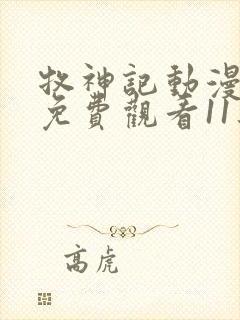 牧神記動漫
免費觀看11
高虎